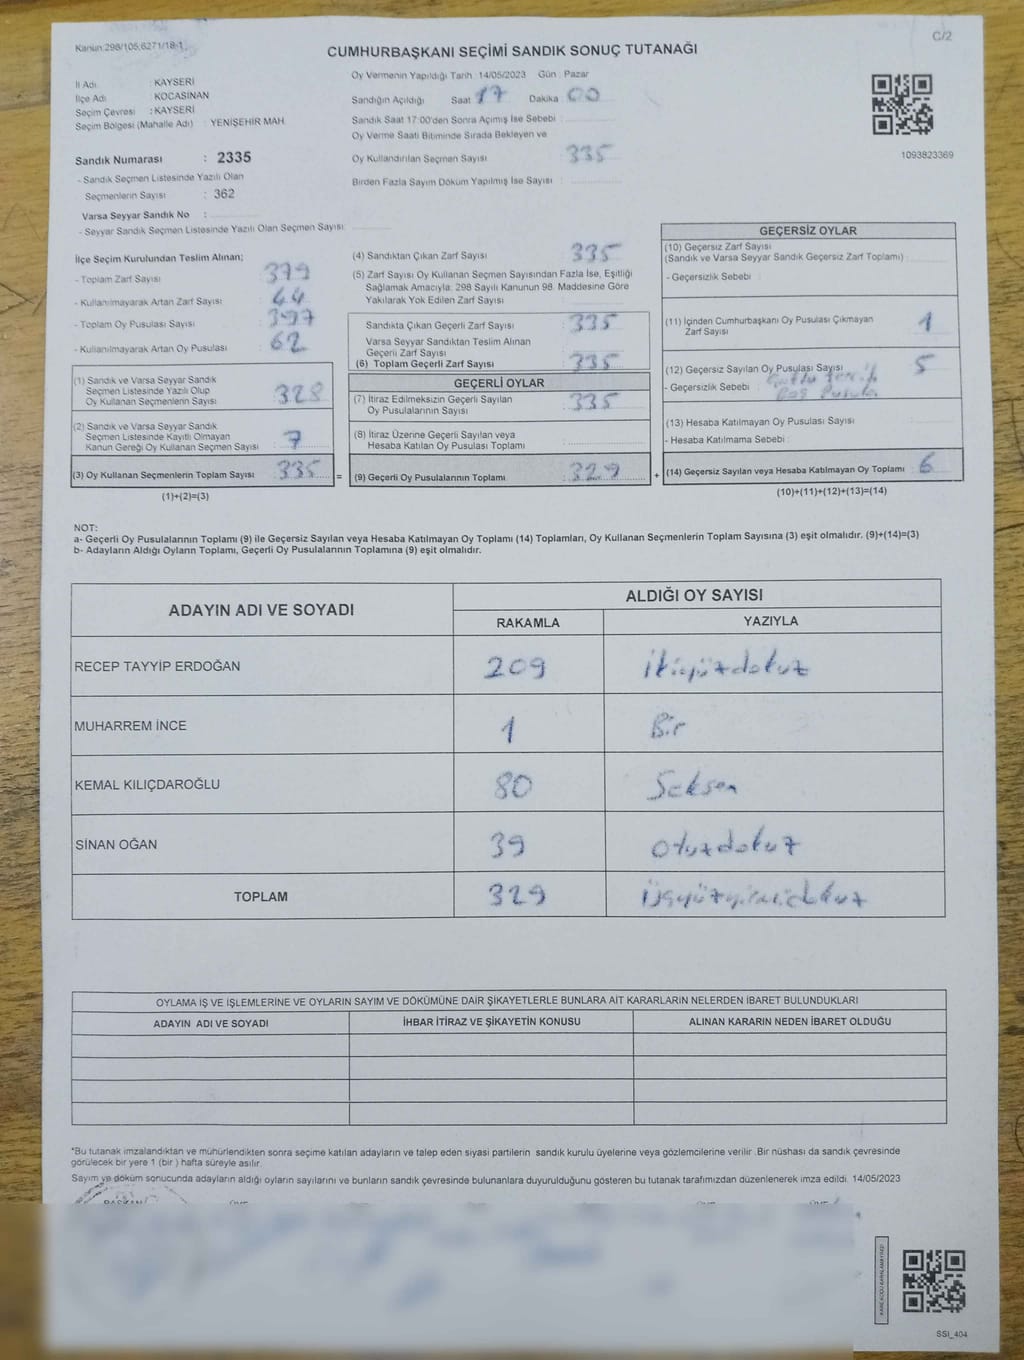 Kanun:298/105;6271/18-1
C/2
CUMHURBAŞKANI SEÇİMİ SANDIK SONUÇ TUTANAĞI
İl Adı : KAYSERİ
İlçe Adı : KOCASİNAN
Seçim Çevresi : KAYSERİ
Seçim Bölgesi (Mahalle Adı) : YENİŞEHİR MAH.
Sandık Numarası : 2335
- Sandık Seçmen Listesinde Yazılı Olan
Seçmenlerin Sayısı : 362
Varsa Seyyar Sandık No :
- Seyyar Sandık Seçmen Listesinde Yazılı Olan Seçmen Sayısı:
Oy Vermenin Yapıldığı Tarih : 14/05/2023 Gün : Pazar
Sandığın Açıldığı Saat 17 Dakika 00
Sandık Saat 17:00'den Sonra Açımış İse Sebebi :
Oy Verme Saati Bitiminde Sırada Bekleyen ve
Oy Kullandırılan Seçmen Sayısı 335
Birden Fazla Sayım Döküm Yapılmış İse Sayısı :
1093823369
İlçe Seçim Kurulundan Teslim Alınan;
- Toplam Zarf Sayısı : 379
- Kullanılmayarak Artan Zarf Sayısı : 44
- Toplam Oy Pusulası Sayısı : 397
- Kullanılmayarak Artan Oy Pusulası : 62
(1) Sandık ve Varsa Seyyar Sandık
Seçmen Listesinde Yazılı Olup
Oy Kullanan Seçmenlerin Sayısı : 328
(2) Sandık ve Varsa Seyyar Sandık
Seçmen Listesinde Kayıtlı Olmayan
Kanun Gereği Oy Kullanan Seçmen Sayısı : 7
(3) Oy Kullanan Seçmenlerin Toplam Sayısı : 335 =
(1)+(2)=(3)
(4) Sandıktan Çıkan Zarf Sayısı : 335
(5) Zarf Sayısı Oy Kullanan Seçmen Sayısından Fazla İse, Eşitliği
Sağlamak Amacıyla; 298 Sayılı Kanunun 98. Maddesine Göre
Yakılarak Yok Edilen Zarf Sayısı :
Sandıkta Çıkan Geçerli Zarf Sayısı : 335
Varsa Seyyar Sandıktan Teslim Alınan
Geçerli Zarf Sayısı :
(6) Toplam Geçerli Zarf Sayısı : 335
GEÇERLİ OYLAR
(7) İtiraz Edilmeksizin Geçerli Sayılan
Oy Pusulalarının Sayısı : 335
(8) İtiraz Üzerine Geçerli Sayılan veya
Hesaba Katılan Oy Pusulası Toplamı :
(9) Geçerli Oy Pusulalarının Toplamı : 329 +
GEÇERSİZ OYLAR
(10) Geçersiz Zarf Sayısı
(Sandık ve Varsa Seyyar Sandık Geçersiz Zarf Toplamı) :
- Geçersizlik Sebebi :
(11) İçinden Cumhurbaşkanı Oy Pusulası Çıkmayan
Zarf Sayısı : 1
(12) Geçersiz Sayılan Oy Pusulası Sayısı : 5
- Geçersizlik Sebebi :
(13) Hesaba Katılmayan Oy Pusulası Sayısı :
- Hesaba Katılmama Sebebi :
(14) Geçersiz Sayılan veya Hesaba Katılmayan Oy Toplamı : 6
(10)+(11)+(12)+(13)=(14)
NOT:
a- Geçerli Oy Pusulalarının Toplamı (9) ile Geçersiz Sayılan veya Hesaba Katılmayan Oy Toplamı (14) Toplamları, Oy Kullanan Seçmenlerin Toplam Sayısına (3) eşit olmalıdır. (9)+(14)=(3)
b- Adayların Aldığı Oyların Toplamı, Geçerli Oy Pusulalarının Toplamına (9) eşit olmalıdır.
ADAYIN ADI VE SOYADI ALDIĞI OY SAYISI
RAKAMLA YAZIYLA
RECEP TAYYİP ERDOĞAN 209 ikiyüzdokuz
MUHARREM İNCE 1 Bir
KEMAL KILIÇDAROĞLU 80 Seksen
SİNAN OĞAN 39 otuzdokuz
TOPLAM 329 üçyüzyirmidokuz
OYLAMA İŞ VE İŞLEMLERİNE VE OYLARIN SAYIM VE DÖKÜMÜNE DAİR ŞİKAYETLERLE BUNLARA AİT KARARLARIN NELERDEN İBARET BULUNDUKLARI
ADAYIN ADI VE SOYADI İHBAR İTİRAZ VE ŞİKAYETİN KONUSU ALINAN KARARIN NEDEN İBARET OLDUĞU
*Bu tutanak imzalandıktan ve mühürlendikten sonra seçime katılan adayların ve talep eden siyasi partilerin sandık kurulu üyelerine veya gözlemcilerine verilir. Bir nüshası da sandık çevresinde
görülecek bir yere 1 (bir ) hafta süreyle asılır.
Sayım ve döküm sonucunda adayların aldığı oyların sayılarını ve bunların sandık çevresinde bulunanlara duyurulduğunu gösteren bu tutanak tarafımızdan düzenlenerek imza edildi. 14/05/2023
SSI_404